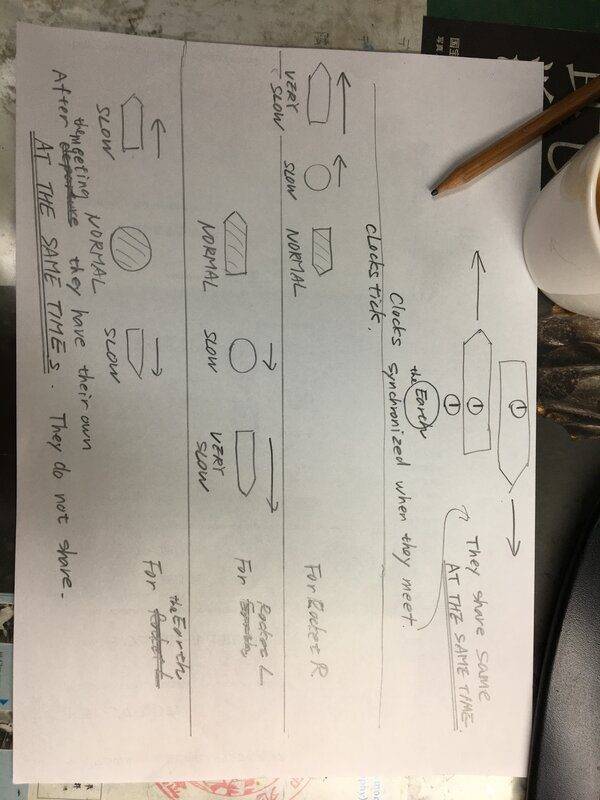 ①
①
①
They share same
AT THE SAME TIME.
the Earth
Clocks synchronized when they meet.
Clocks tick.
VERY SLOW
SLOW
NORMAL
For Rocket R.
NORMAL
SLOW
VERY SLOW
For Rocket L
SLOW
NORMAL
SLOW
For the Earth
After themeeting they have their own
AT THE SAME TIMES. They do not share.
国宝
写真